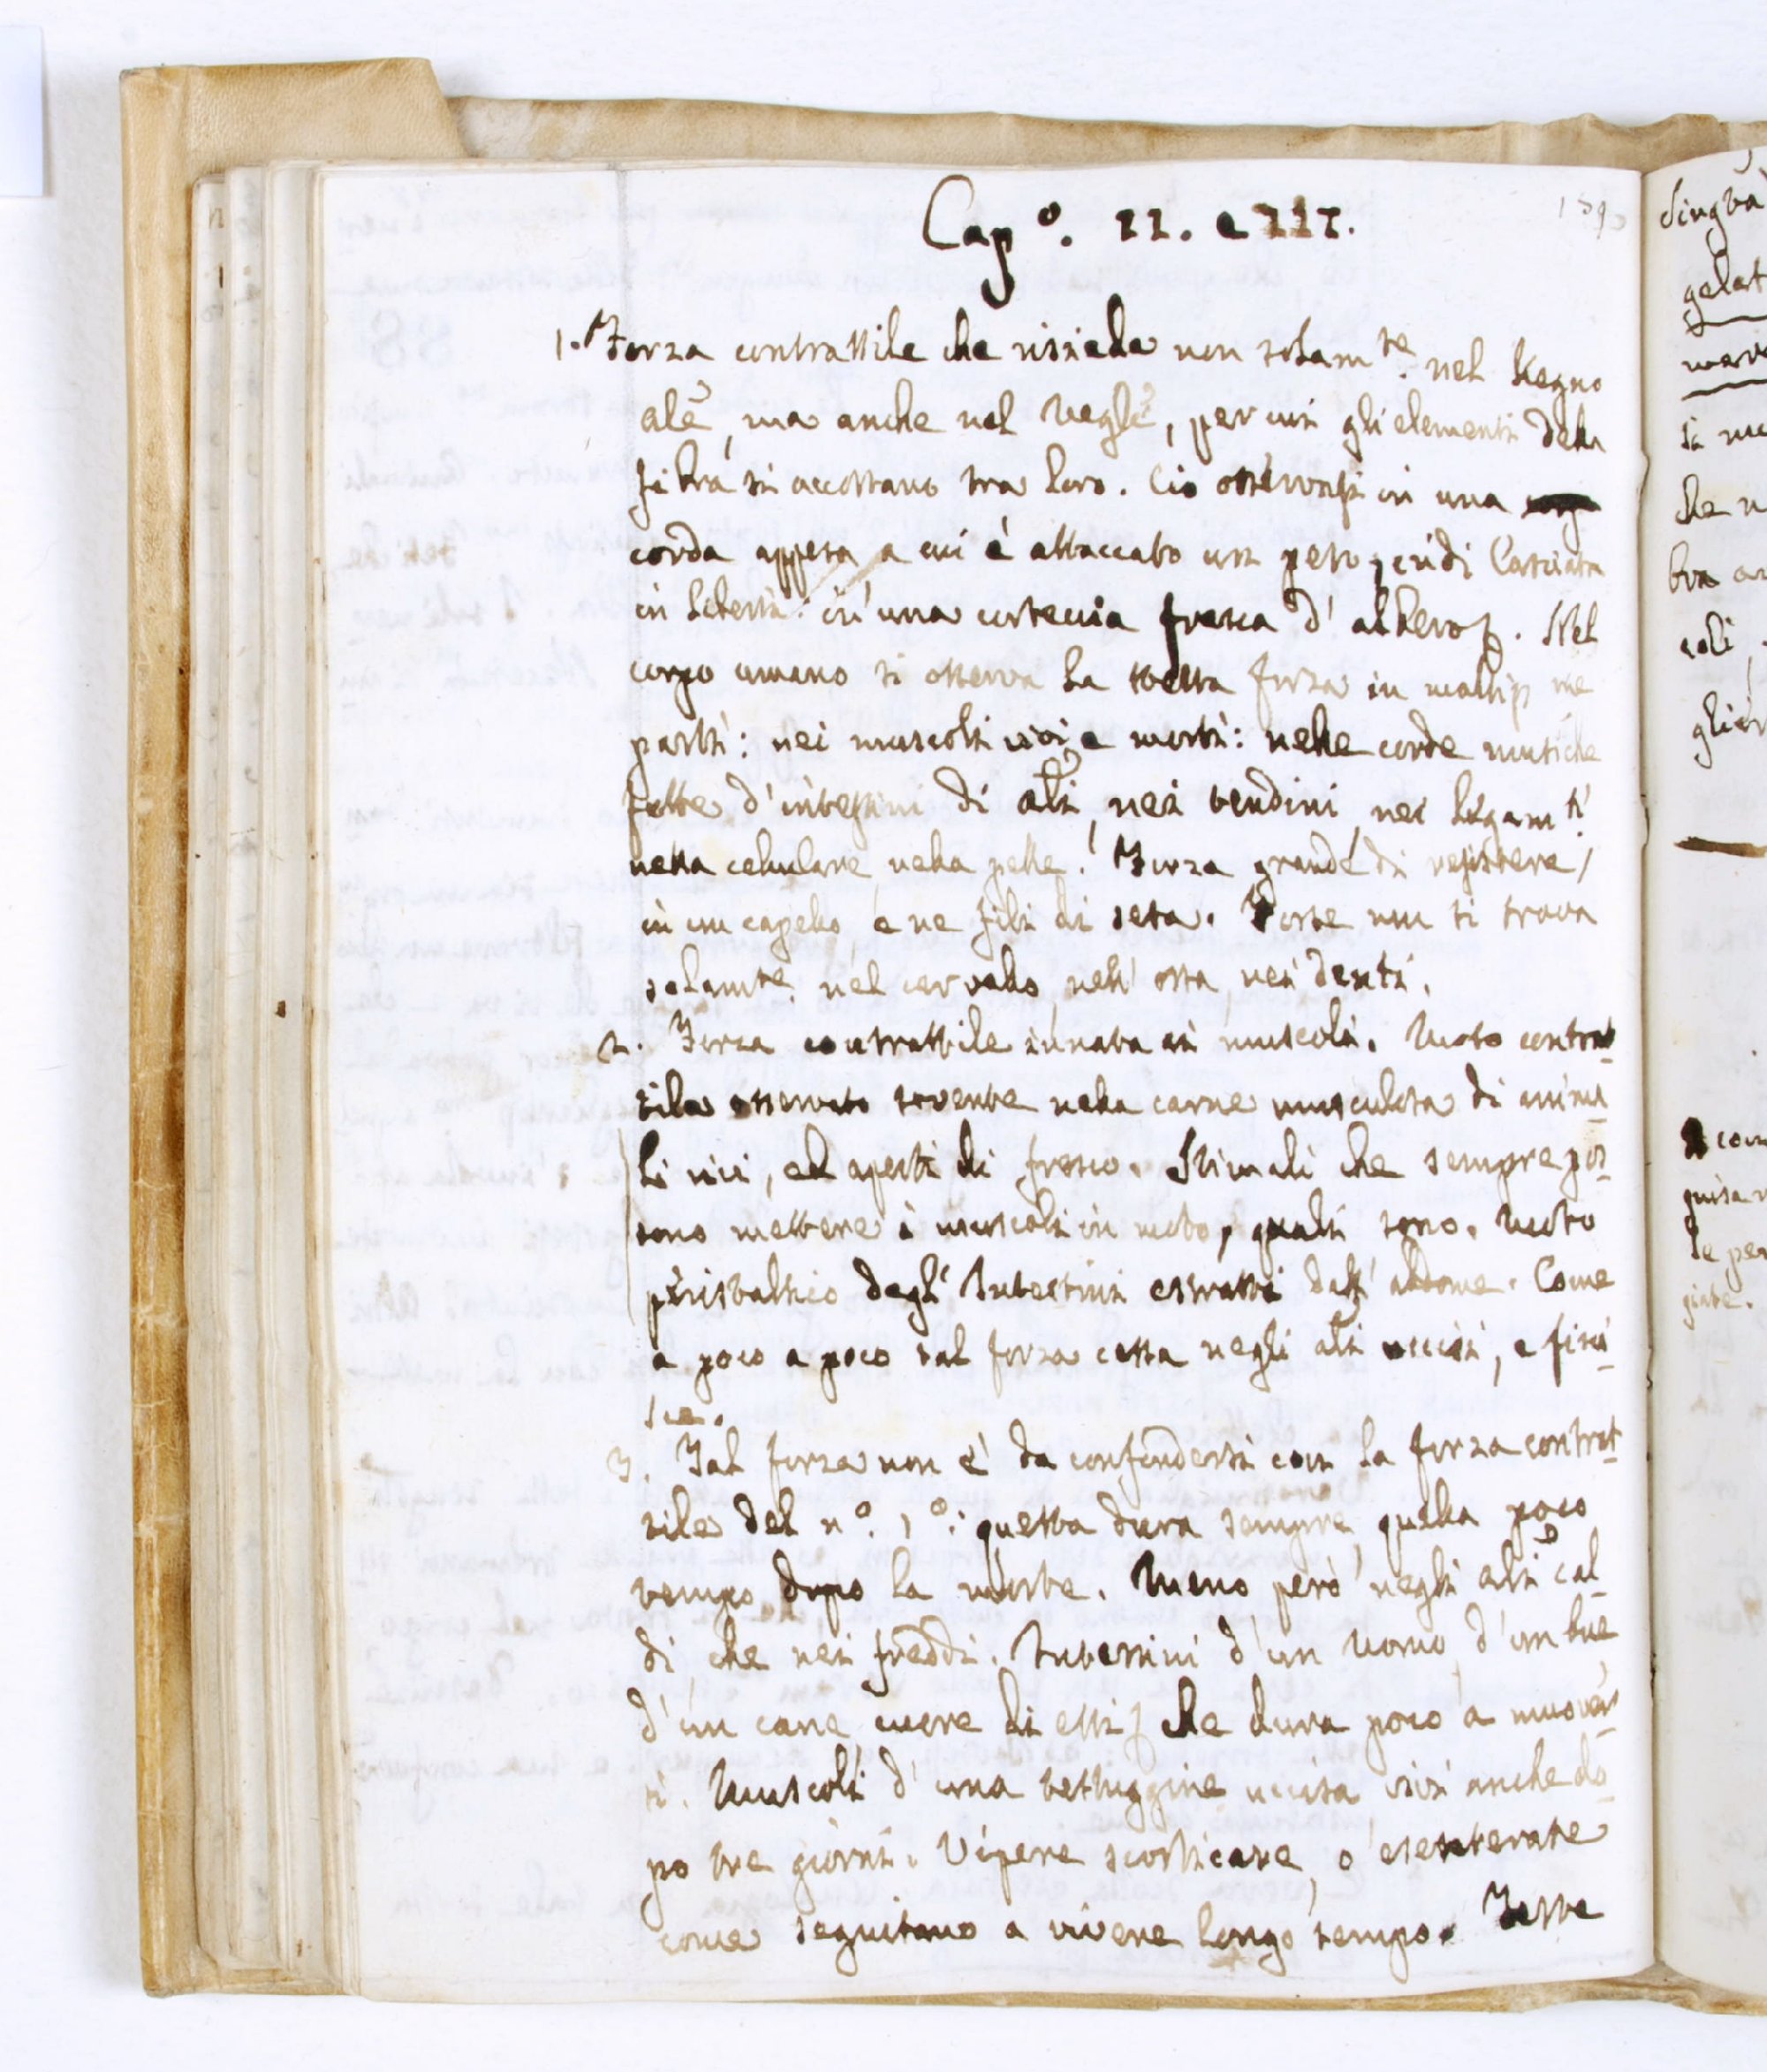 Cap°. II. e III.
1. Forza contrattile che risiede non solam.te nel Regno
ale, ma anche nel Vegle, per cui gli elementi della
fibra si accostano tra loro. Ciò osservasi in una
corda appesa a cui è attaccato un peso, e indi lasciata
in libertà: in una corteccia fresca d'albero. Nel
corpo umano si osserva la stessa forza in moltiss.me
parti: nei muscoli vivi e morti: nelle corde musiche
fatte d'intestini di ali, nei tendini, nei ligam.ti
nella cellulare, nella pelle. Forza grande di resistere
in un capello e ne fili di seta. Forse non si trova
solam.te nel cervello, nell'ossa, nei denti.
2. Forza contrattile innata ai muscoli. Moto contrat-
tile osservato sovente nella carne musculosa di anima-
li vivi, ed aperti di fresco. Stimoli che sempre pos-
sono mettere i muscoli in moto, quali sono. Moto
peristaltico degl'Intestini estratti dall'abdome. Come
a poco a poco tal forza cessa negli ali uccisi, e finì-
sce.
3. Tal forza non è da confondersi con la forza contrat-
tile del n°. 1°: questa dura sempre, quella poco
tempo dopo la morte. Meno però negli ali cal-
di che nei freddi. Intestini d'un Uomo, d'un bue,
d'un cane, cuore di essi che dura poco a muover-
si. Muscoli d'una testuggine uccisa vivi anche do-
po tre giorni. Vipere scorticate, o esenterate
come seguitano a vivere lungo tempo. Teste